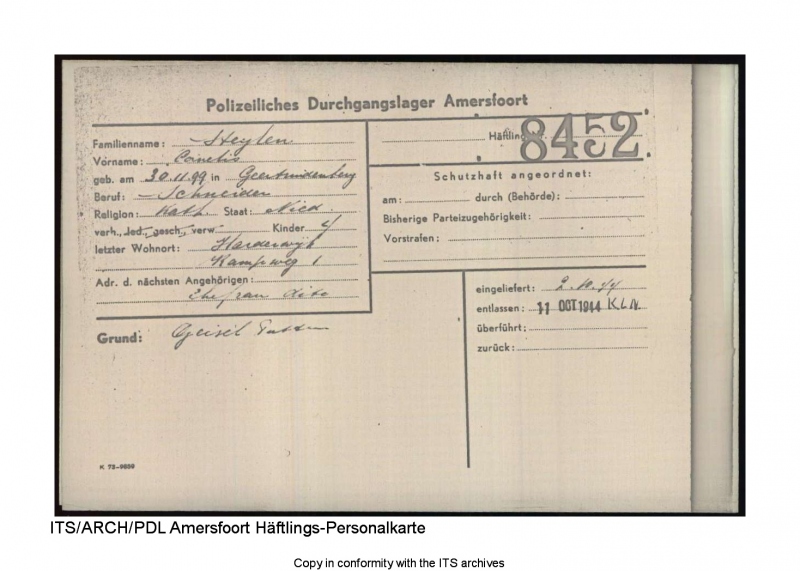 Polizeiliches Durchgangslager Amersfoort
Familienname: Steylen
Vorname: Cornelis
geb. am 30.11.99 in Geertruidenberg
Beruf: Schneider
Religion: Kath. Staat: Nied.
verh., led., gesch., verw. Kinder 4
letzter Wohnort: Harderwijk
Kampweg 1
Adr. d. nächsten Angehörigen:
Ehefrau
Grund: Geisel Putten
K 73-9659
Häftling
8452
Schutzhaft angeordnet:
am: durch (Behörde):
Bisherige Parteizugehörigkeit:
Vorstrafen:
eingeliefert: 2.10.44
entlassen: 11 OCT 1944 K.L.N.
überführt:
zurück:
ITS/ARCH/PDL Amersfoort Häftlings-Personalkarte
Copy in conformity with the ITS archives